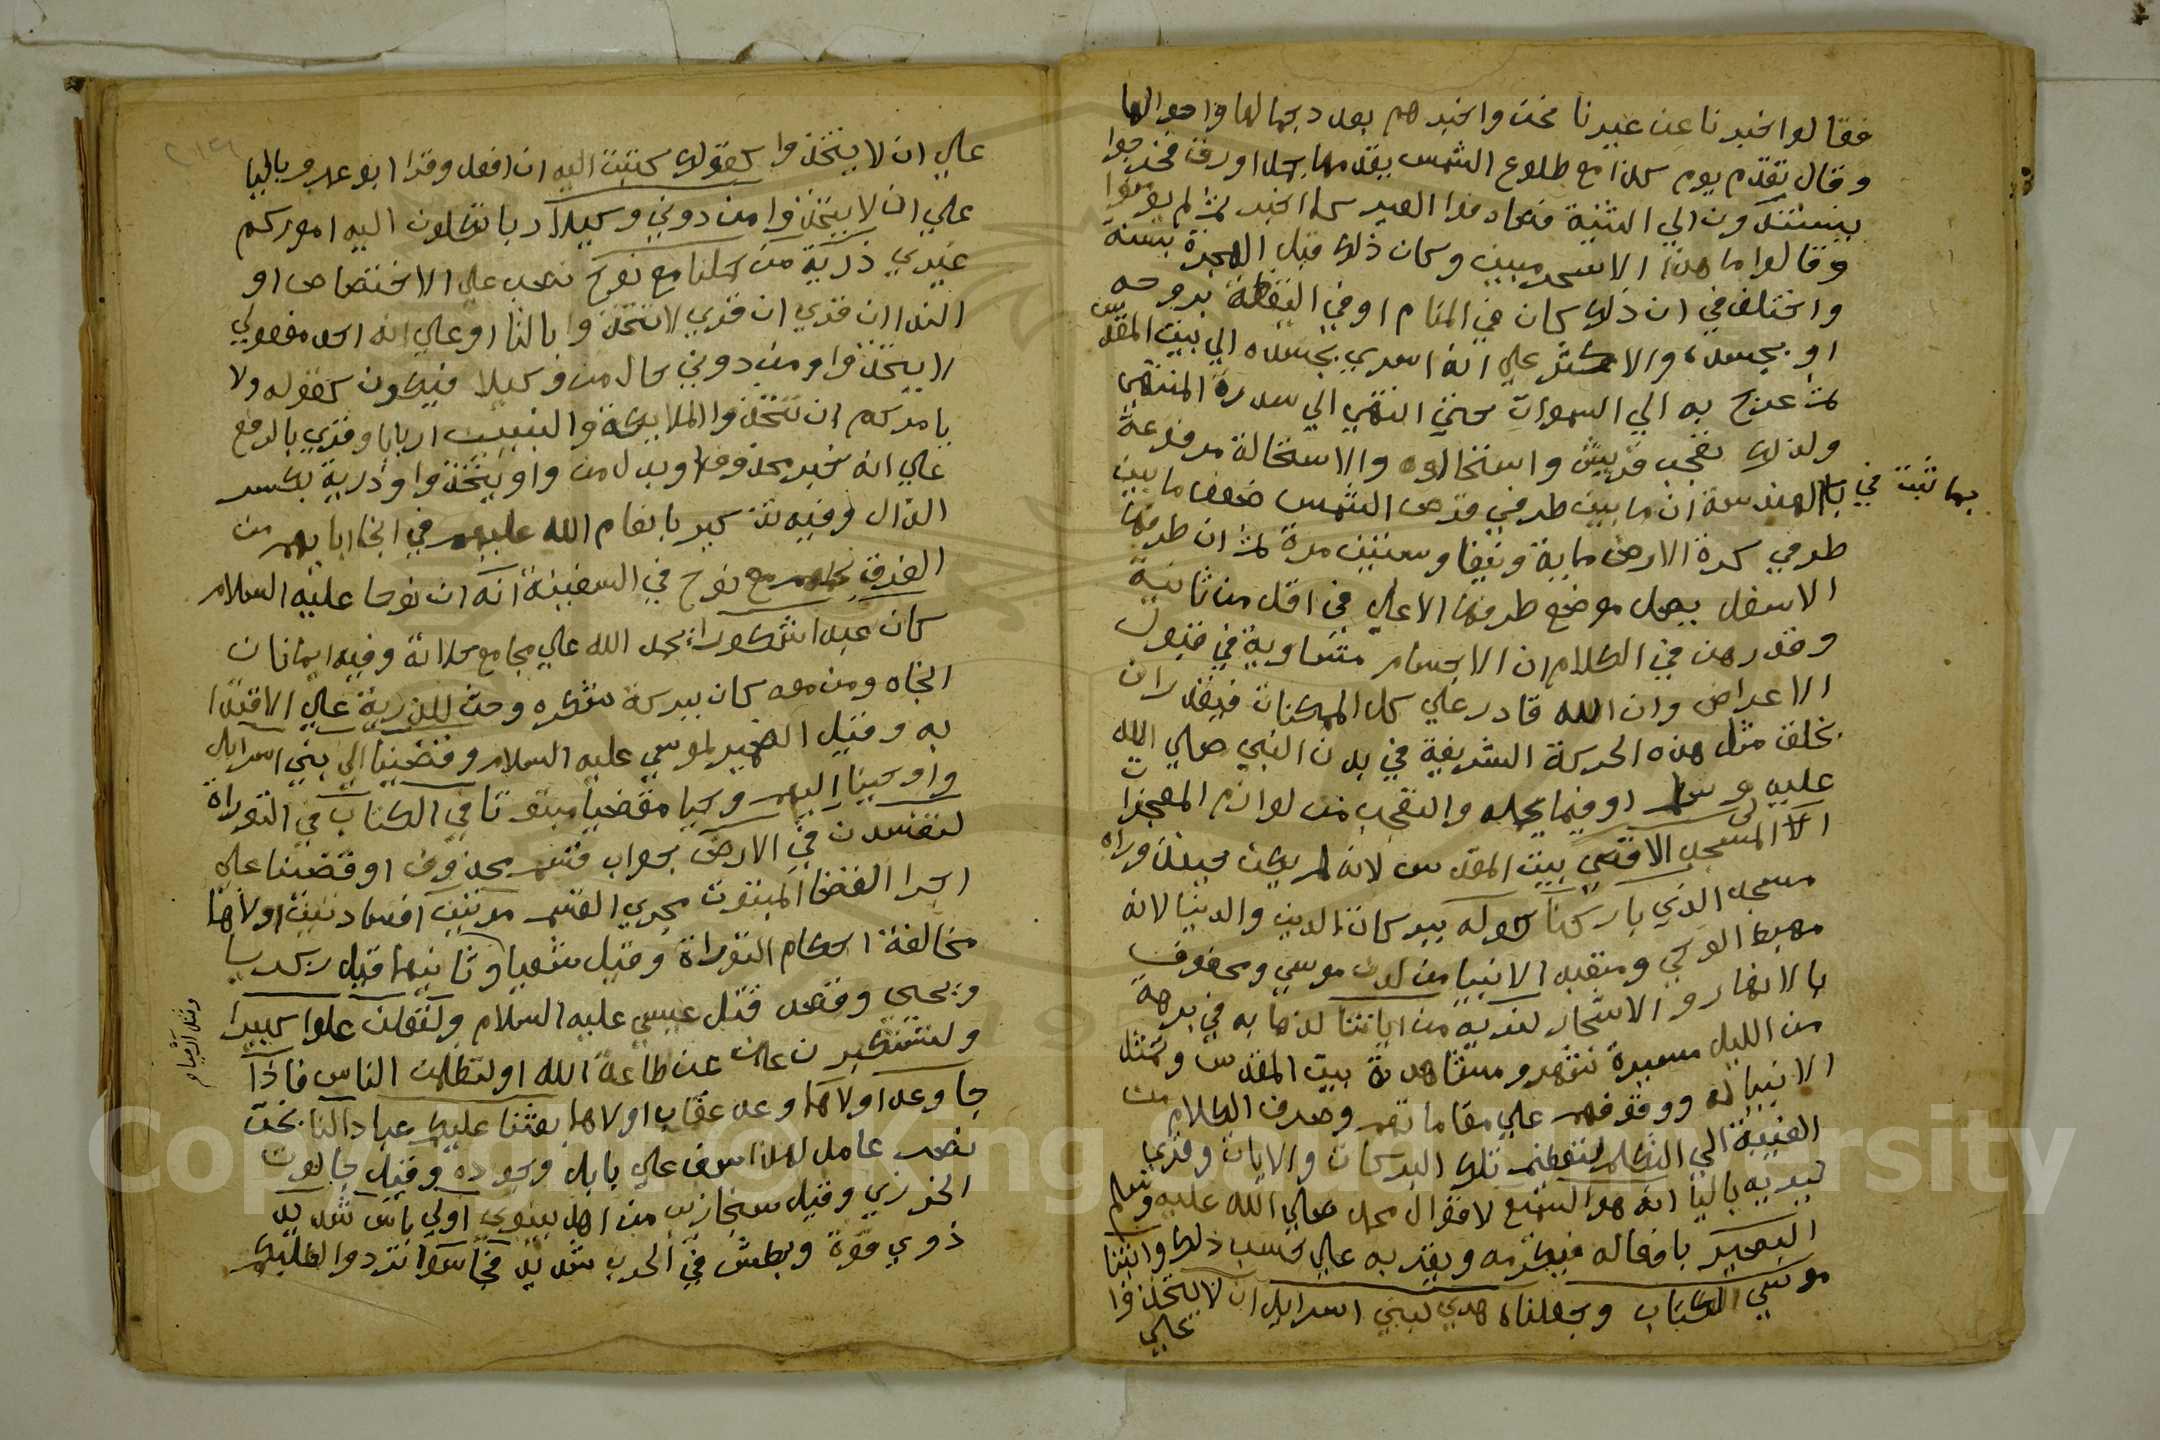 فقالوا اخبرنا عن عيرنا نحن واخبرهم بعدد جمالها واحوالها
وقال تقدم يوم كذا مع طلوع الشمس يقدمها جمل اورق فخرجوا
يشتدون الي الثنية فصادفوا العير كما اخبر ثم لم يومنوا
وقالوا ما هذا الا سحر مبين وكان ذلك قبل الهجرة بسنة
واختلف في ان ذلك كان في المنام او في اليقظة بروحه
او بجسده والاكثر علي انه اسري بجسده الي بيت المقدس
ثم عرج به الي السموات حتي انتهي الي سدرة المنتهي
ولذلك تعجب قريش واستحالوه والاستحالة مدفوعة
بما ثبت في الهندسة ان ما بين طرفي قرص الشمس ضعف ما بين
طرفي كرة الارض ماية ونيفا وستين مرة ثم ان طرفها
الاسفل يصل موضع طرفها الاعلي في اقل من ثانية
وقد برهن في الكلام ان الاجسام متساوية في قبول
الاعراض وان الله قادر علي كل الممكنات فيقدر ان
يخلق مثل هذه الحركة الشريفة في بدن النبي صلي الله
عليه وسلم او فيما يحمله والتعجب من لوازم المعجزات
الي المسجد الاقصي بيت المقدس لانه لم يكن حينئذ وراه
مسجد الذي باركنا حوله ببركات الدين والدنيا لانه
مهبط الوحي ومتعبد الانبيا من لدن موسي ومحفوف
بالانهار والاشجار لنريه من اياتنا كذهابه في برهة
من الليل مسيرة شهر ومشاهدة بيت المقدس وتمثل
الانبيا له ووقوفهم علي مقاماتهم وصرف الكلام من
الغيبة الي التكلم لتعظيم تلك البركات والايات وقري
ليريه باليا انه هو السميع لاقوال محمد صلي الله عليه وسلم
البصير بافعاله فيكرمه ويقربه علي حسب ذلك واتينا
موسي الكتاب وجعلناه هدي لبني اسرايل ان لا يتخذوا
علي
علي ان لا يتخذوا كقولك كتبت اليه ان افعل وقرا ابو عمرو باليا
علي ان لا يتخذوا من دوني وكيلا ربا تكلون اليه اموركم
غيري ذرية من حملنا مع نوح نصب علي الاختصاص او
الندا ان قري ان قري لا تتخذوا بالتا او علي انه احد مفعولي
لا يتخذوا ومن دوني حال من وكيلا فيكون كقوله ولا
يامركم ان تتخذوا الملايكة والنبيين اربابا وقري بالرفع
علي انه خبر محذوف او بدل من واو يتخذوا وذرية بكسر
الذال وفيه تذكير بانعام الله عليهم في انجا ابايهم من
الغرق بحملهم مع نوح في السفينة انه ان نوحا عليه السلام
كان عبدا شكورا يحمد الله علي مجامع حالاته وفيه ايما بان
انجاه ومن معه كان ببركة شكره وحث للذرية علي الاقتدا
به وقيل الضمير لموسي عليه السلام وقضينا الي بني اسرايل
واوحينا اليهم وحيا مقضيا مبتوتا في الكتاب في التوراة
لتفسدن في الارض جواب قسم محذوف او قضينا علي
اجرا القضا المبتوت مجري القسم مرتين افسادتين اولاها
مخالفة احكام التوراة وقيل شعيا وثانيها قتل زكريا
ويحيي وقصد قتل عيسي عليه السلام ولتعلن علوا كبيرا
ولتستكبرن عن طاعة الله او لتظلمن الناس فاذا
جا وعد اولاها وعد عقاب اولاها بعثنا عليكم عبادا لنا بخت
نصر عامل لهراسف علي بابل وجنوده وقيل جالوت
الخزري وقيل سنجاريب من اهل نينوي اولي باس شديد
ذوي قوة وبطش في الحرب شديد فجاسوا ترددوا لطلبكم
Copyright © King Saud University